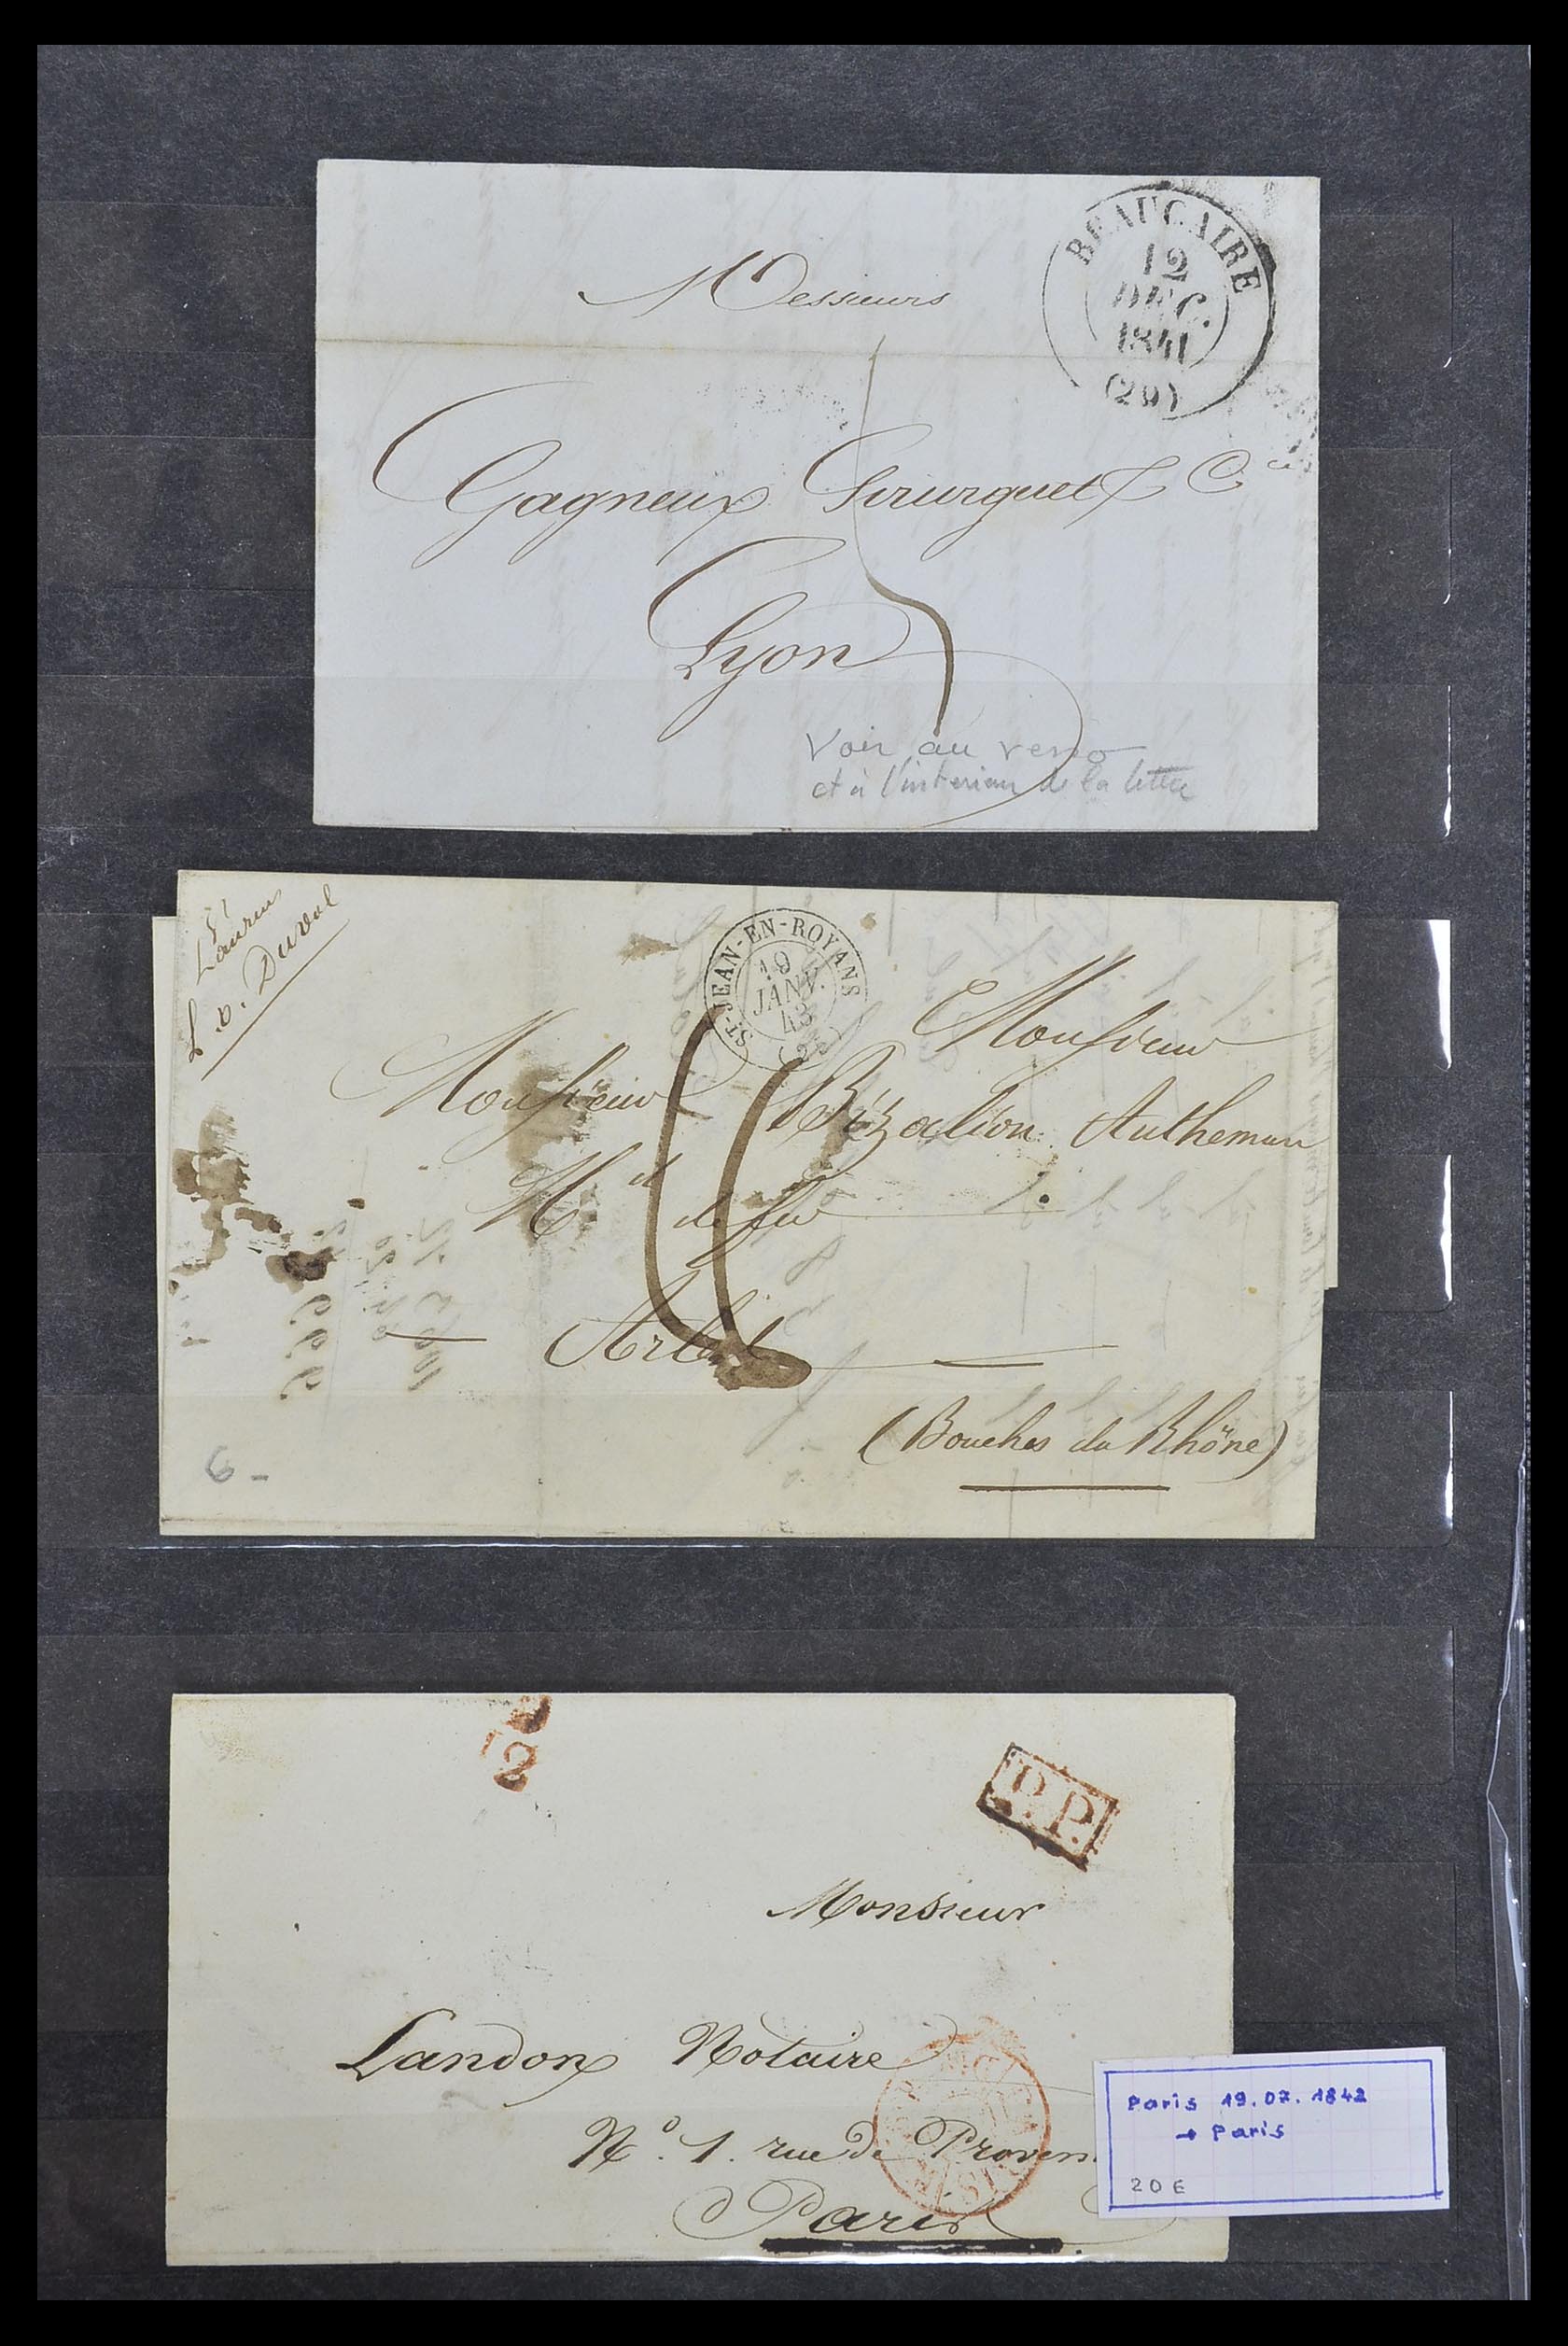 BEAUCAIRE
12
DEC.
1841
(29)
Messieurs
Gagneux & Cie
Lyon
5
Voir au verso
et à l'interieur de la lettre
L. v. Duval
ST-JEAN-EN-ROYANS
19
JANV.
43
Monsieur
Monsieur
BizalionAutheman
Md de fer
Arles
(Bouches du Rhône)
6 -
2
P.P.
Monsieur
Landon Notaire
No. 1. rue de Proven
Paris
Paris 19.07.1842
→ Paris
20 €